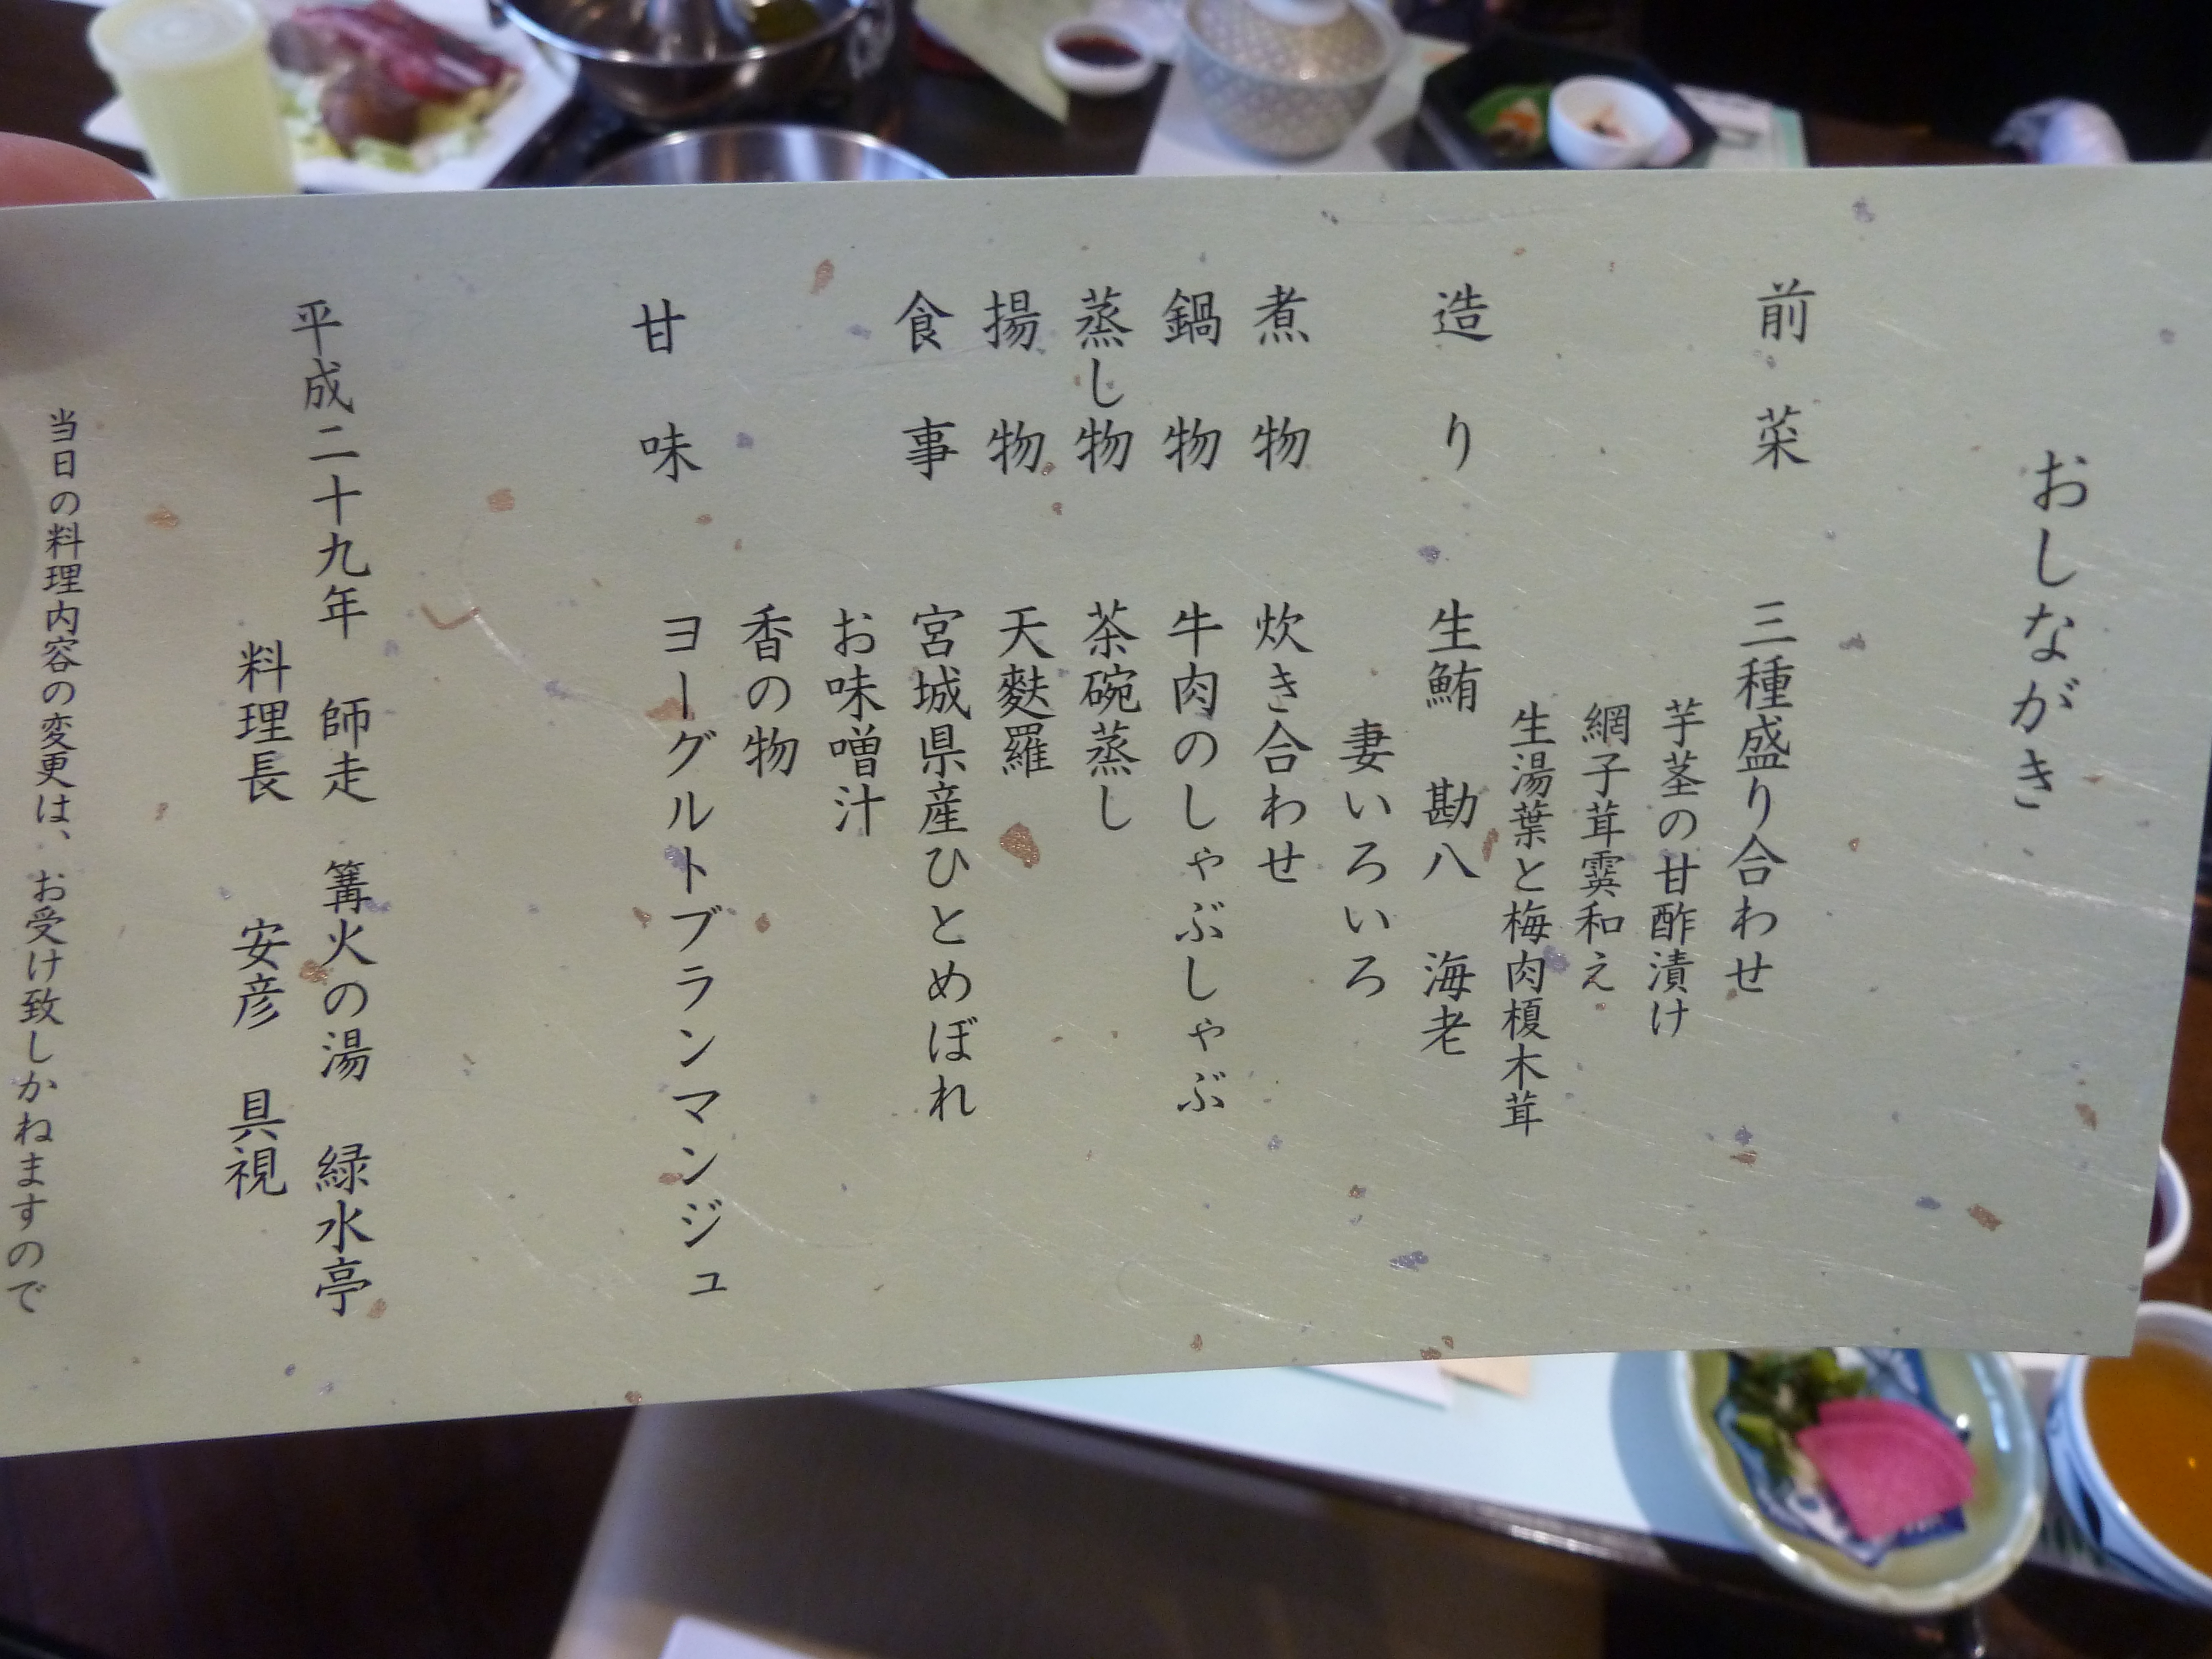 おしながき
前菜　三種盛り合わせ
芋茎の甘酢漬け
網子茸霙和え
生湯葉と梅肉榎木茸
造り　生鮪　勘八　海老
妻いろいろ
煮物　炊き合わせ
鍋物　牛肉のしゃぶしゃぶ
蒸し物　茶碗蒸し
揚物　天麩羅
食事　宮城県産ひとめぼれ
お味噌汁
香の物
甘味　ヨーグルトブランマンジュ
平成二十九年　師走　篝火の湯　緑水亭
料理長　安彦　具視
当日の料理内容の変更は、お受け致しかねますので